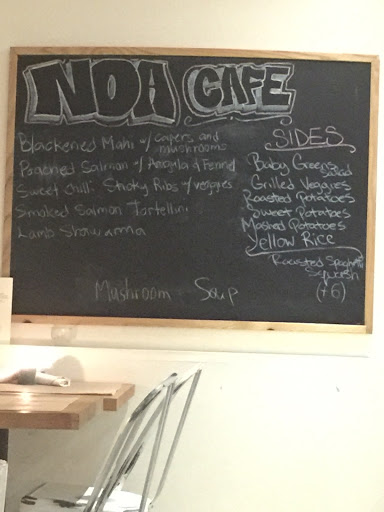 NOA CAFE
Blackened Mahi w/ capers and
mushrooms
Salmon w/ Arugula & Fennel
Sweet Chili Sticky Ribs w/ veggies
Smoked Salmon Tortellini
Lamb Shawarma
Mushroom Soup
SIDES
Baby Greens
Salad
Grilled Veggies
Roasted Potatoes
Sweet Potatoes
Mashed Potatoes
Yellow Rice
Roasted Spaghetti
Squash
(+6)